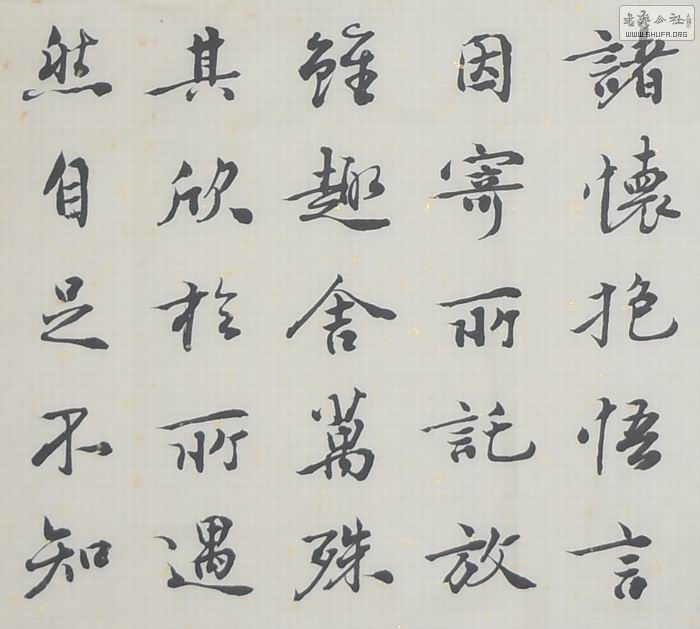 諸懷抱悟言
因寄所託放
雖趣舍萬殊
其欣於所遇
然自足不知
書法公社
WWW.SHUFA.ORG